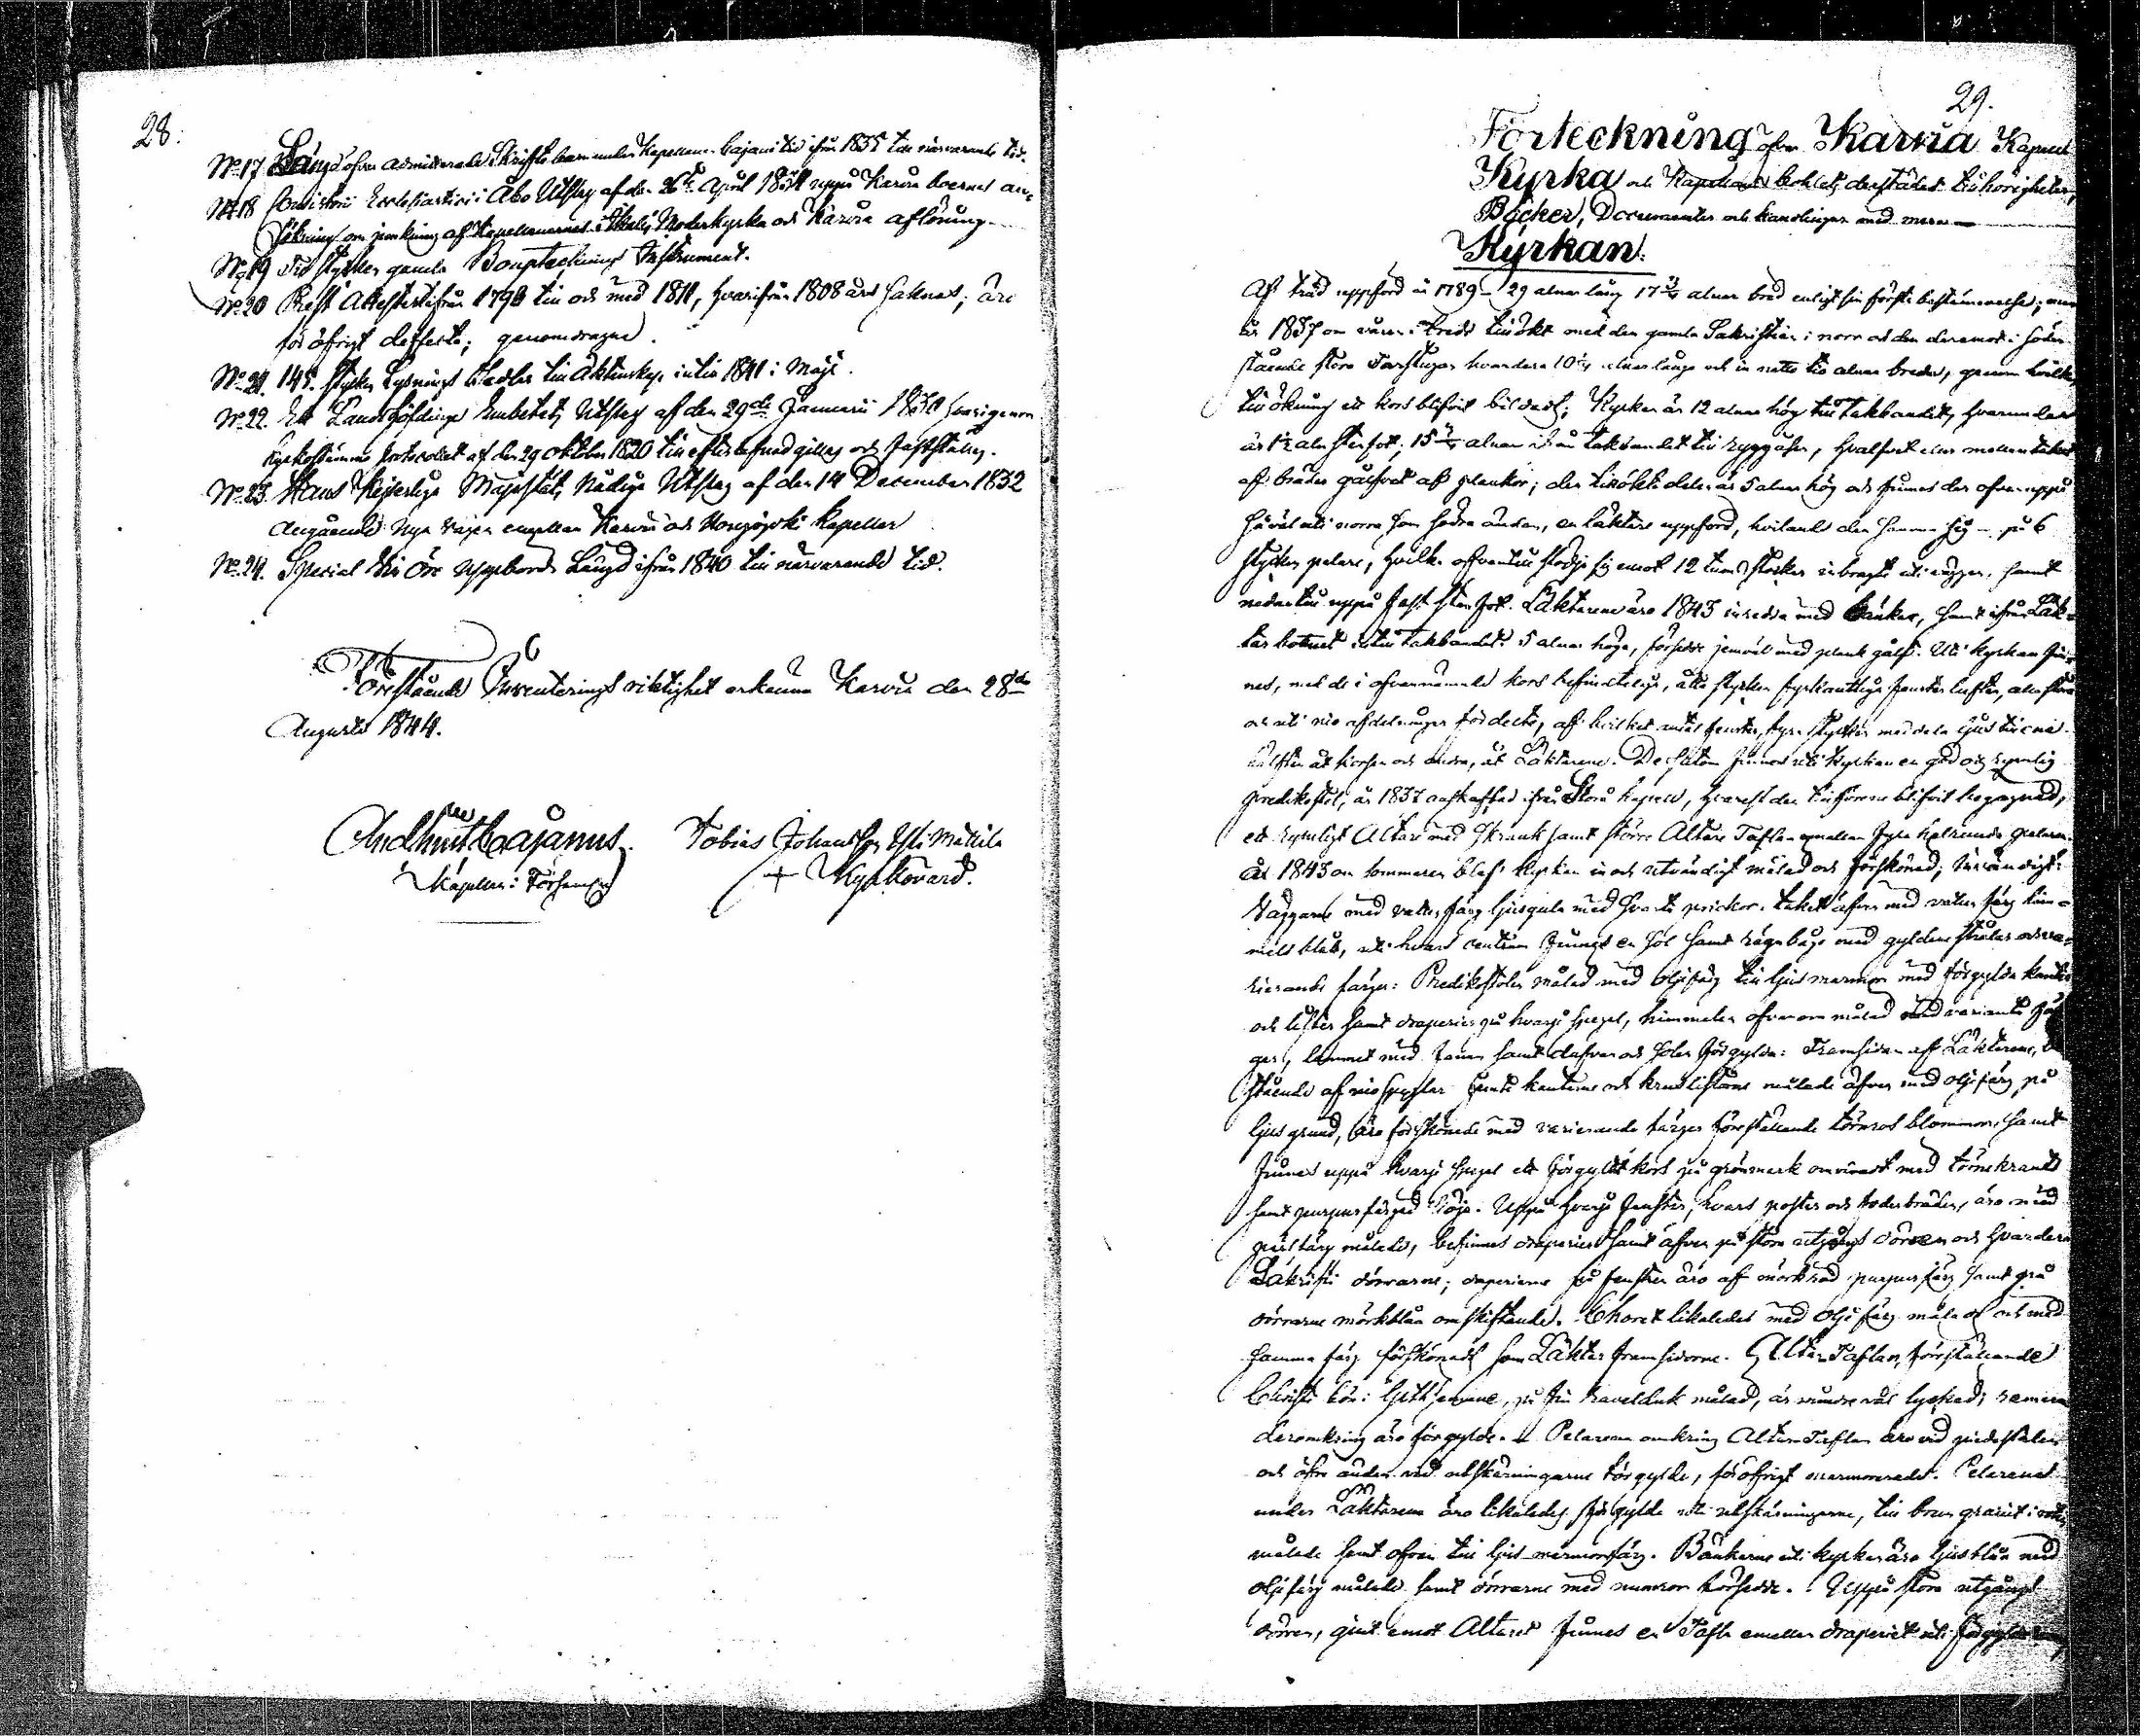 28.
No 17 Längd öfver admitterade Skriftebarn under Kapellan Cajani tid ifrån 1835 till närvarande tid.
No 18 Consistorii Ecclesiastici i Åbo Utslag af den 26te April uppå Karvia boernes an-
sökning om jemkning af Kapellanernes i Ikalis Moderkyrka och Karvia aflöning.
No 19 Tio stycken gamla Bouptecknings Instrument.
No 20 Prest Attester ifrån 1796 till och med 1811, hvarifrån 1808 års saknas; äro
för öfrigt deffecta; genomdragne.
No 21. 145. stycken Lysnings Sedlar till Äktenskap intill 1841 i Maji.
No 22. Ett Landshöfdinge Embetets Utslag af den 29de Januarii hvarigenom
Kyrkostämmo protocollet af den 29 October 1820 till efterlefnad gillas och fastställes.
No 23. Hans Kejserliga Majestäts Nådiga Utslag af den 14 December 1832
Angående Nya vägen emellan Karvia och Honjoki Kapeller
No 24. Special Sex Öre Uppbörds Längd ifrån 1840 till närvarande tid.
Förestående Inventerings riktighet erkänna Karvia den 28de
Augusti 1844.
And. Cajanus. Tobias Johansson Yli Mattila
Kapellan i Församl. + Kyrkovärd.
29.
Förteckning öfver Karvia Kapell
Kyrka och Kapellans bohlets derstädes tillhörigheter,
Böcker, Documenter och handlingar med mera
Kyrkan.
Af träd uppförd år 1789 29 alnar lång 17 3/4 alnar bred enligt sin första bestämmelse; men
år 1837 om våren i bredd tillökt med den gamla Sakristian i norr och den deremot i söder
stående stora Farstugan hvardera 10 1/4 alnar långa och in natto tio alnar breda, genom hvilken
tillökning ett kors blifvit bildadt; Kyrkan är 12 alnar hög till takbandet, hvarunder
är 1 1/2 aln stenfot; 15 alnar ifrån takbandet till ryggåsen, hvalfvet eller mellantaket
af bräder gålfvet af plankor; den tillökte delen är 5 alnar hög och finnes der ofvanuppå
såväl uti norra som södra ändan, en läktare uppförd, hvilande den samma sig på 6
stycken pelare, hvilka ofvantill stödja sig emot 12 tums stockar inbragte uti väggen, samt
nedantill uppå fast stenfot. Läktarena äro 1843 inredde med bänkar, samt ifrån Läk-
tar botnet intill takbandet 5 alnar höga, försedde jemväl med plank gålf. Uti kyrkan fin-
nes, med de i ofvannämnde kors befinteliga, åtta stycken fyrkantiga fenster lufter, alla stora
och uti nio afdelningar fördelte, af hvilket antal fenster, fyra stycken meddela ljus till ena
hälften åt korsen och andra, åt Läktarene. Dessutom finnes uti Kyrkan en god och rymlig
predikostol, år 1837 anskaffad ifrån Storå kapell, hvarest den tillförene blifvit begagnad,
ett rymligt Altare med skrank samt större Altare Taflan emellan fyra halfrunda pelare.
År 1843 om sommaren blef Kyrkan in och utvändigt målad och förskönad; Invändigt:
Väggarne med vatten färg ljusgula med svarta prickor. taket äfven med vatten färg him-
mels blått, uti hvars centrum finnes en sol samt rägnbåge med gyldene strålar och va-
rierande färger: Predikstolen målad med oljefärg till ljus marmor med förgylda kanter
och lister samt draperier på hvarje spegel, himmelen ofvanom målad med varierande fär-
ger, lammet med fanan samt dufvan och solen förgylda: Framsidan af Läktarene, be-
stående af nio speglar jemte kanterne och kruslisterne målade äfven med oljefärg på
ljus grund, äro förskönade med varierande färger föreställande törnros blommor, samt
finnes uppå hvarje spegel ett förgyldt kors på grönmark omvirat med törnekrants
samt purpurfärgad slöja. Uppå hvarje fenster, hvars poster och foderbräden, äro med
perlfärg målade, befinnes draperier samt äfven på stora utgångs dörren och hvardera
Sakristi dörrarne; draperierne på fenstren äro af mörkröd purpurfärg samt på
dörrarne mörkblåa omskiftande. Choret likaledes med olje färg målad och med
samma färg förskönadt som Läktar framsidorne. Altar Taflan, föreställande
Christi bön i Gethsemane, på fin raveldduk målad, är mindre väl lyckad; ramerne
deromkring äro förgylde. Pelarena omkring Altar Taflan äro vid piedestalen
och öfre ändan vid utskärningarne förgylde, för öfrigt marmorerade. Pelarenes
under Läktarena äro likaledes förgylda uti utskärningarne, till brun granit i
målade samt ofvan till ljus marmorfärg. Bänkarne uti kyrkan äro ljusblåa med
oljefärg målade samt dörrarne med numror försedde. Uppå stora utgångs
dörren, gent emot Altaret finnes en Tafla emellan draperiet uti förgylde